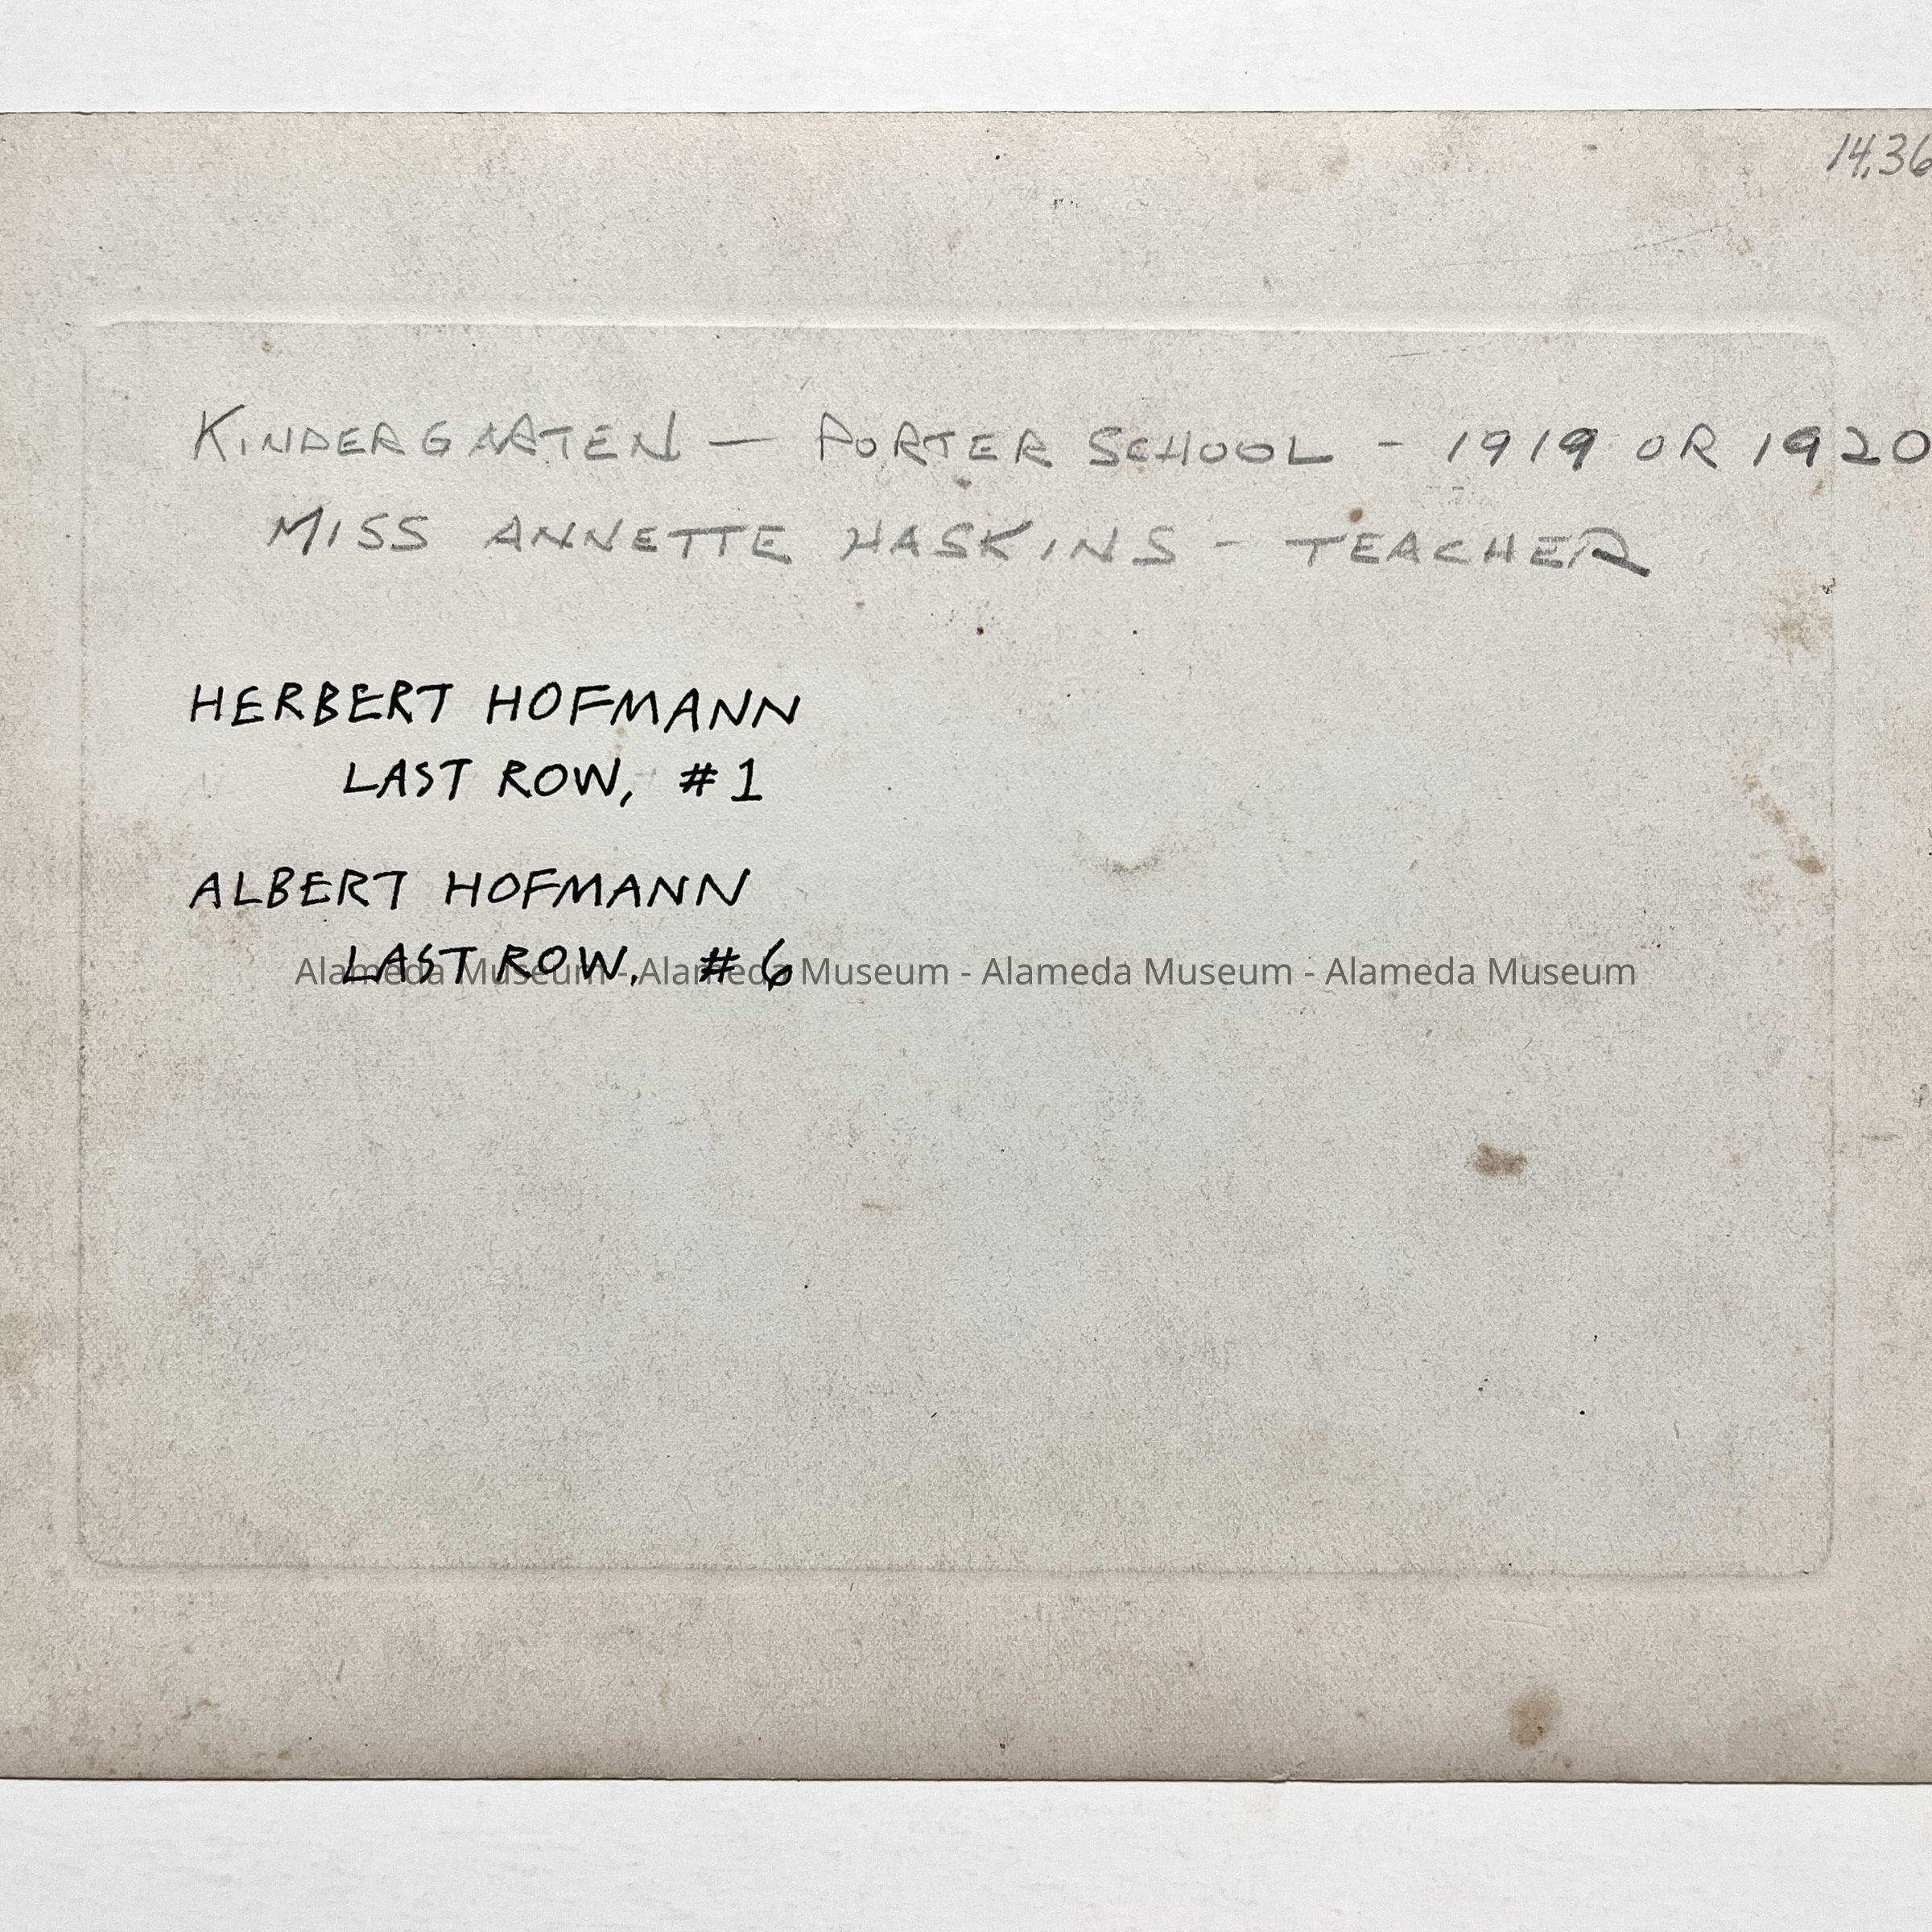 14,36
KINDERGARTEN — PORTER SCHOOL - 1919 OR 1920
MISS ANNETTE HASKINS - TEACHER
HERBERT HOFMANN
LAST ROW, #1
ALBERT HOFMANN
LAST ROW, #6
Alameda Museum - Alameda Museum - Alameda Museum - Alameda Museum